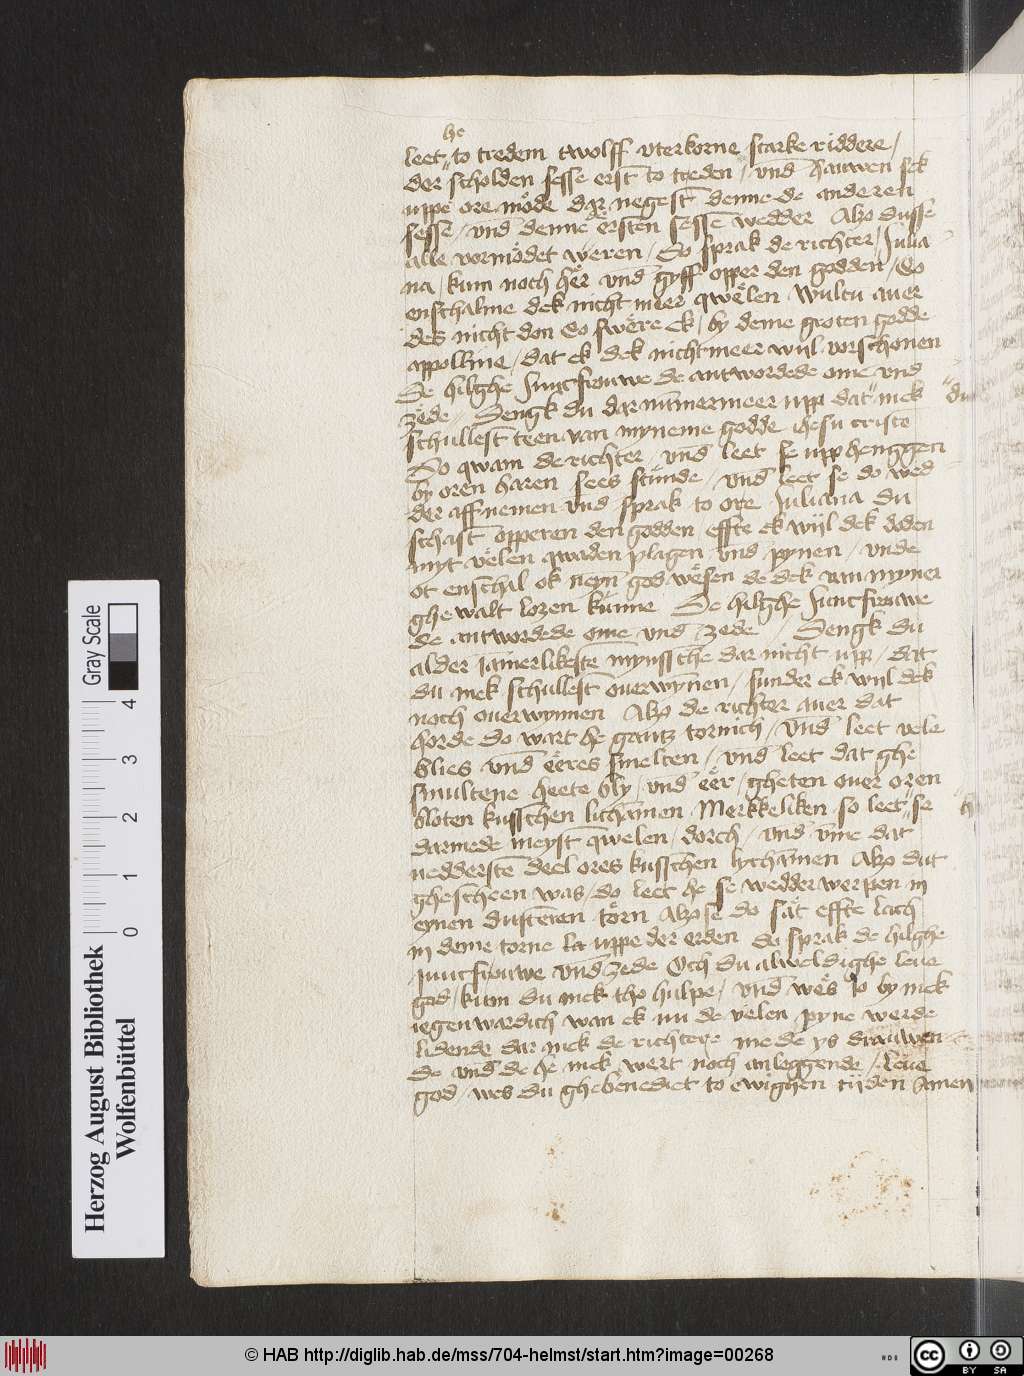 he
leet" to tredem twolff vterkorne starke riddere /
der scholden sesse erst to treden / vnd hauwen sek
uppe ore möde dar negest denne de anderen
sesse / vnd denne ersten sesse wedder Alzo dusse
alle vormödet weren / So sprak de richter / Julia
na / kum noch her vnd gyff opper den godden / So
enschalme dek nicht meer qwelen wultu auer
des nicht don So swere Ek / by deme groten godde
appolline / dat ek dek nicht meer wyl vorschonen
De hilghe Juncfrouwe de antwordede ome vnd
zede / Dengk du dar nūmermeer upp dat" mek "du
schullest teen van myneme godde ihesu cristo
Do qwam de richter / vnd leet se upp henggen
by oren haren sees stunde / vnd leet se do wed
der aff nemen vnd sprak to ore Juliana du
schast opperen den godden effte ek wyl dek doden
myt velen qwaden plagen vnd pynen / vnde
ot enschal ok neyn god wesen de dek van myner
ghewalt lozen kunne De hilghe Juncfrouwe
de antwordede ome vnd zede / Dengk du
alder jāmerlikeste mynssche dar nicht upp / dat
du mek schullest ouerwynen / sunder ek wyl dek
noch ouerwynnen Alzo de richter auer dat
horde do wart he gantz tornich / vnd leet vele
blies vnd eeres smelten / vnd leet dat ghe
smultene heete bly / vnd eer / gheten ouer oren
bloten kusschen lichāmen Merkkeliken so leet" se h
darmede meyst qwelen / dorch / vnd vme dat
nedderste deel ores kusschen lychāmen Alzo dat
ghescheen was / do leet he se wedder werpen in
eynen dusteren törn Alzo se do sat effte lach
in deme torne la uppe der erden do sprak de hilghe
juncfrouwe vnd zede Och du alweldighe leue
god / kum du mek tho hulpe / vnd wes jo by mek
iegenwardich wan ek nu de velen pyne werde
lidende dar mek de richtere mede ys drauwen
de vnd de he mek wert noch anleggende / leue
god / wes du ghebenediet to ewighen tyden Amen
Herzog August Bibliothek
Wolfenbüttel
0 1 2 3 4
Gray Scale
© HAB http://diglib.hab.de/mss/704-helmst/start.htm?image=00268
HAB
cc BY SA